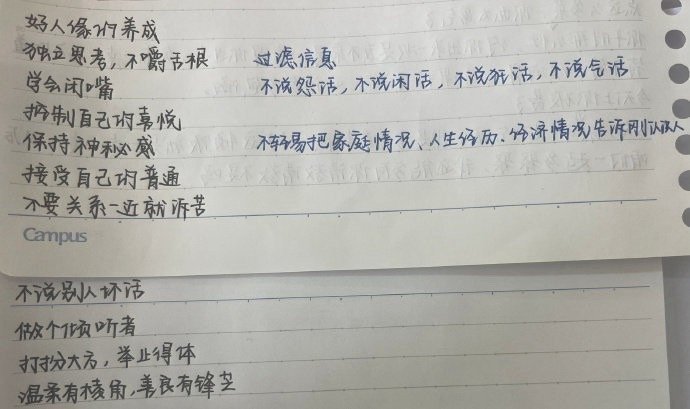 好人缘的养成
独立思考，不嚼舌根 过滤信息
学会闭嘴 不说怨话，不说闲话，不说狂话，不说气话
抑制自己的喜悦
保持神秘感 不轻易把家庭情况、人生经历、经济情况告诉刚认识人
接受自己的普通
不要关系一近就诉苦
Campus
不说别人坏话
做个倾听者
打扮大方，举止得体
温柔有棱角，善良有锋芒